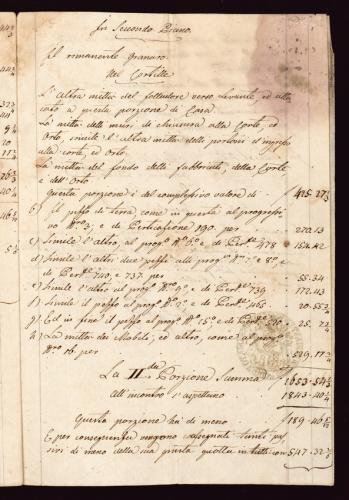 In Secondo Piano.
Il rimanente Granaro.
Nel Cortille
L'altra mittà del follatore verso Levante, ed attaccato a questa porzione di Casa.
La mittà delle muri di chiusura alla Corte, ed
Orto, simile l'altra mittà delle portoni d'ingresso
alla corte, ed Orto.
La mittà del fondo delle fabbricati, della Corte
e dell'Orto
Questa porzione è del complessivo valore di - 425. 27
b) Il pezzo di terra, come in questa al progressivo N.° 3, e di Perticazione 190. per 272.13
c) Simile l'altro, al prog.° N.° 6, e di Pert.e 978 154.42
d) Simile l'altri due pezzi alli prog.i N.° 7, e 8, e
di Pert.e 740, e 737 per 55.34
e) Simile l'altro al prog.° N.° 9, e di Pert.e 739 172.43
f) Simile il pezzo al prog.° N.° 2, e di Pert.e 465. 20.55
g) Ed in fine il pezzo al prog.° N.° 15, e di Pert.e 520 25. 7
h) La mittà dei Mobili, ed altro, come al prog.°
N.ro 16. per 529.17
La II.da Porzione Summa 1653.54
All'incontro l'aspettano 1843.40
Questa porzione ha di meno 189.46
E per conseguenza vengono assegnate tanti passivi di meno della sua giusta quotta in tutti con 547.32